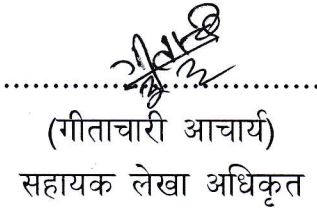 (गीताचारी आचार्य)
सहायक लेखा अधिकृत